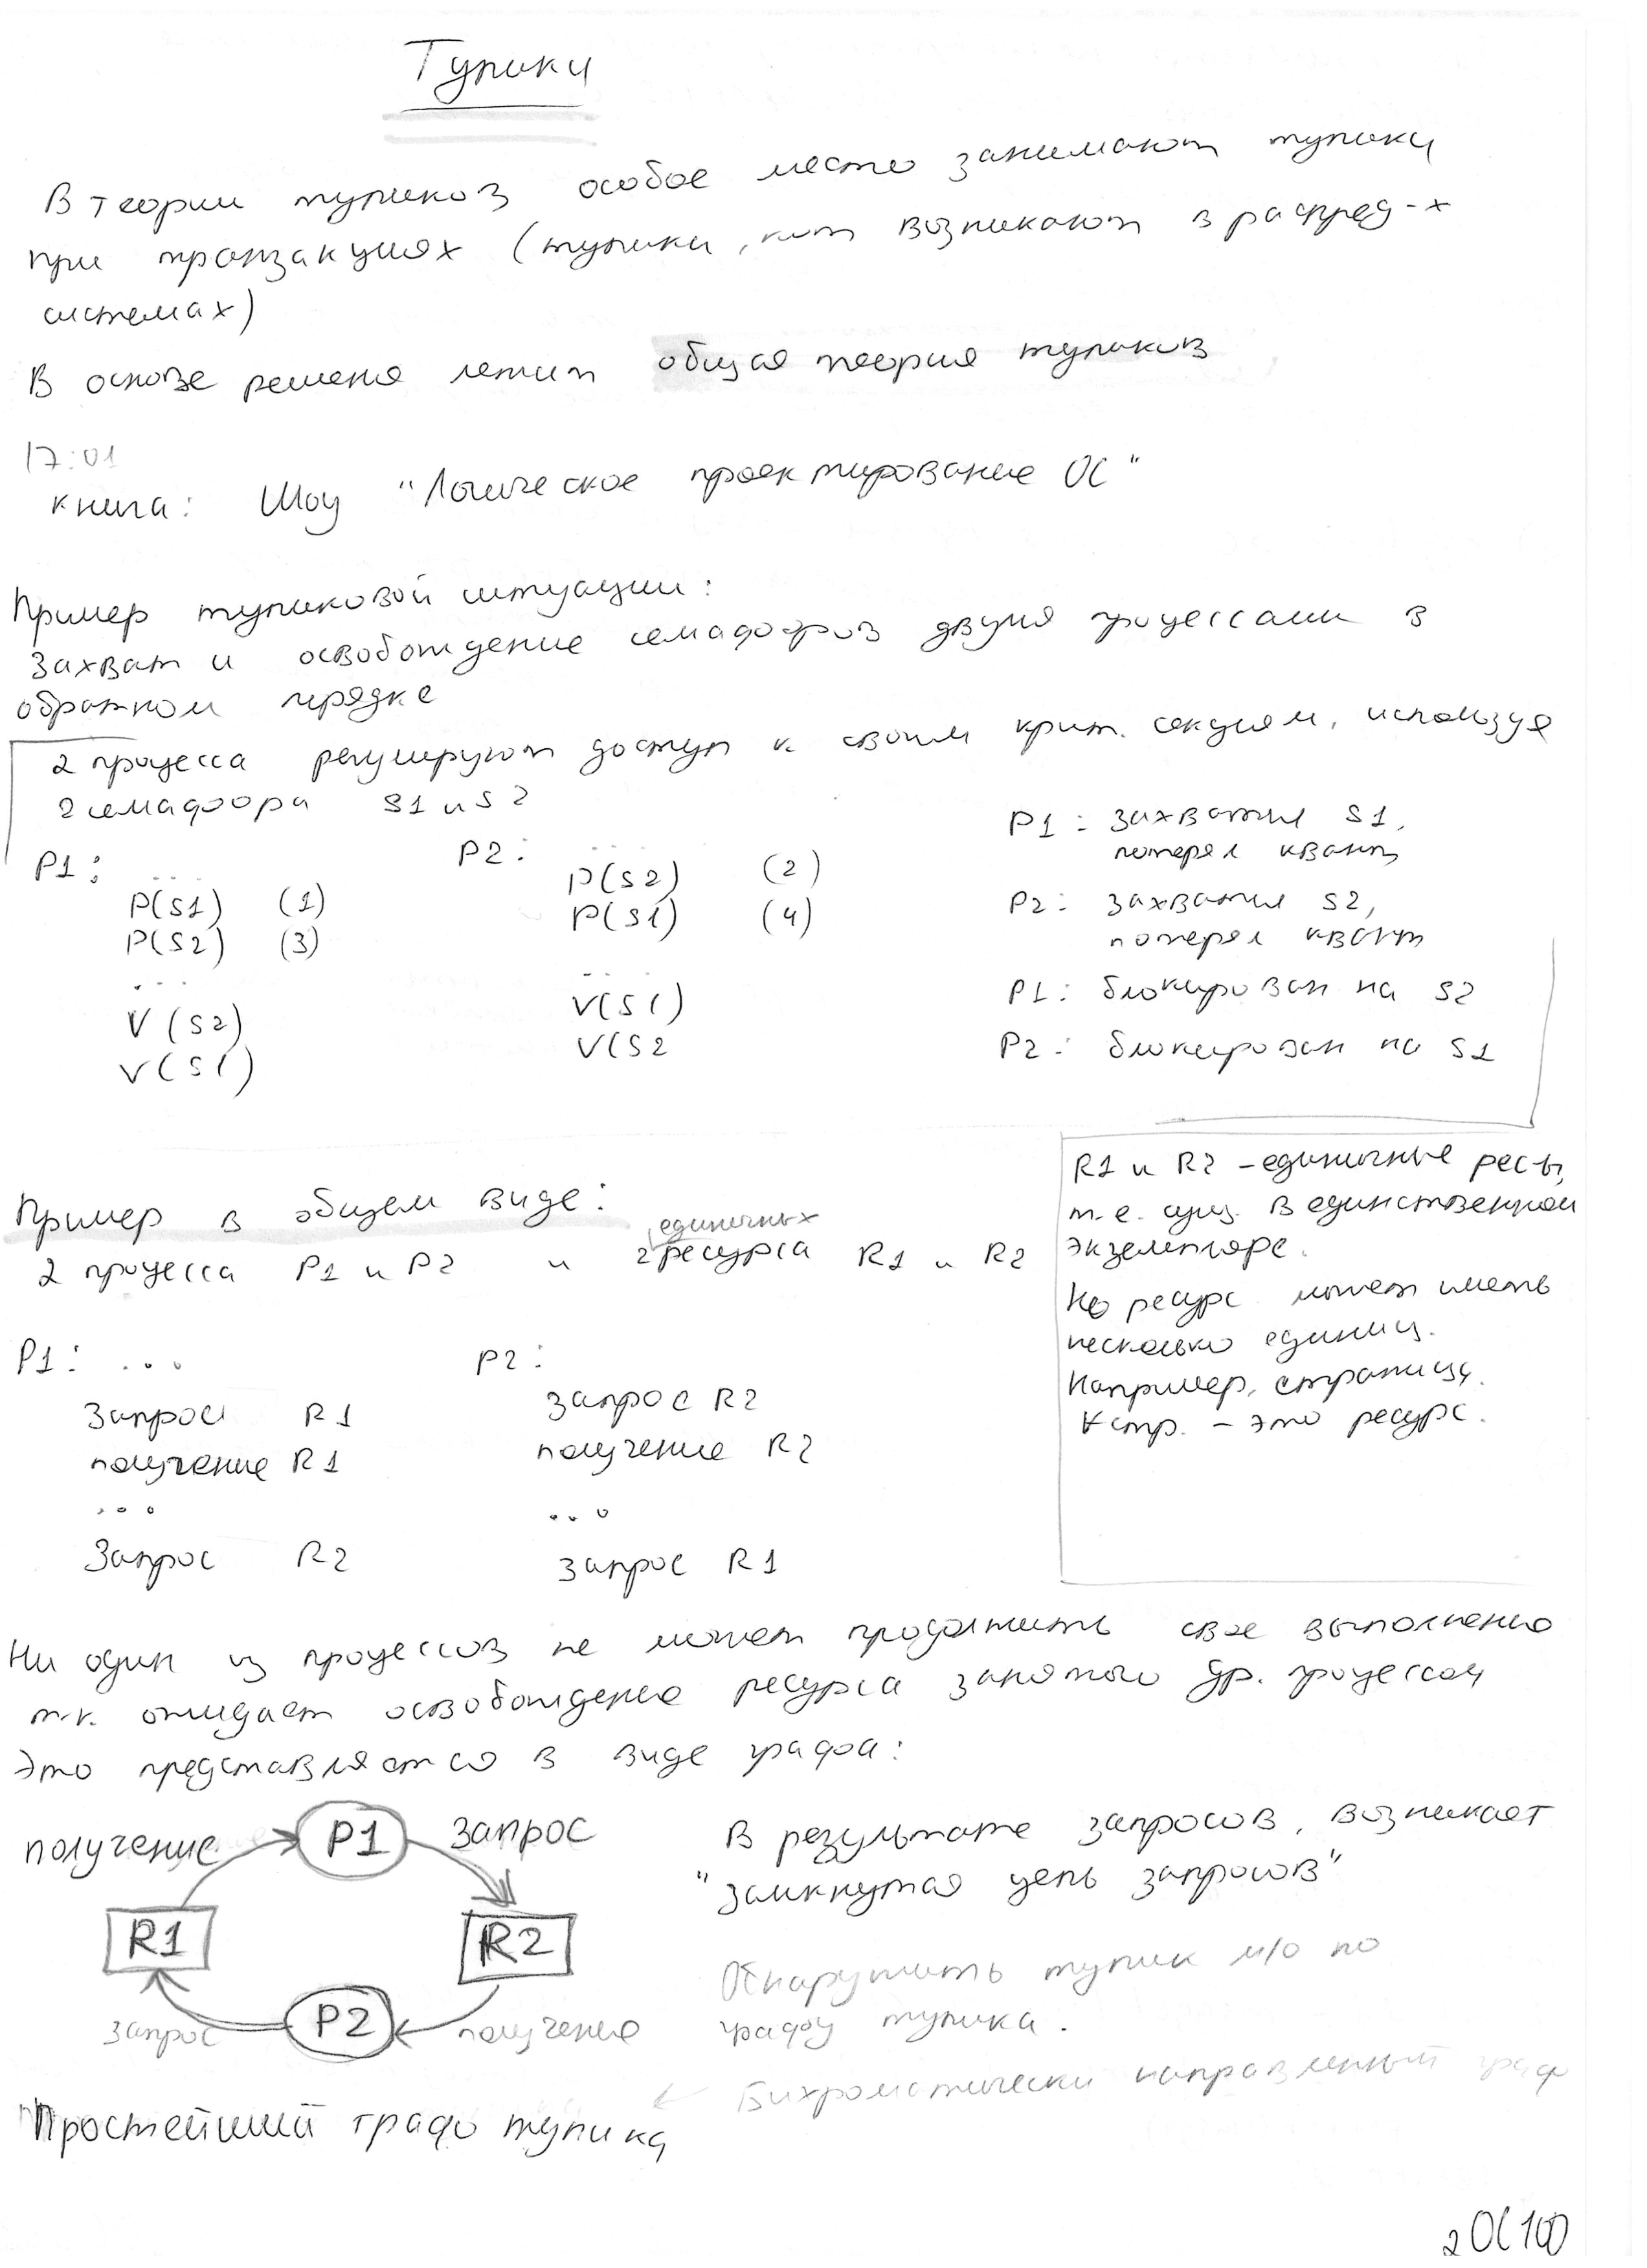 Тупики
В теории тупиков особое место занимают тупики
при транзакциях (тупики, кот возникают в распред-х
системах)
В основе решения лежит общая теория тупиков
17:01
книга: Шоу "Логическое проектирование ОС"
Пример тупиковой ситуации:
Захват и освобождение семафоров двумя процессами в
обратном порядке
2 процесса регулируют доступ к своим крит. секциям, используя
2 семафора S1 и S2
P1: ...
P(S1) (1)
P(S2) (3)
...
V(S2)
V(S1)
P2: ...
P(S2) (2)
P(S1) (4)
...
V(S1)
V(S2
P1: захватил S1,
потерял квант
P2: захватил S2,
потерял квант
P1: блокирован на S2
P2: блокирован на S1
Пример в общем виде:
2 процесса P1 и P2 и 2 единичных ресурса R1 и R2
R1 и R2 - единичные ресы,
т.е. сущ. в единственном
экземпляре.
Но ресурс может иметь
несколько единиц.
Например, страницы.
∀ стр. - это ресурс.
P1: ...
Запрос R1
получение R1
...
Запрос R2
P2:
запрос R2
получение R2
...
запрос R1
Ни один из процессов не может продолжить свое выполнение
т.к. ожидает освобождение ресурса занятого др. процессом
Это представляется в виде графа:
получение P1 запрос
R1 R2
запрос P2 получение
Простейший граф тупика
В результате запросов, возникает
"замкнутая цепь запросов"
Обнаружить тупик м/о по
графу тупика.
← Бихроматически направленный граф
2 ОС 100